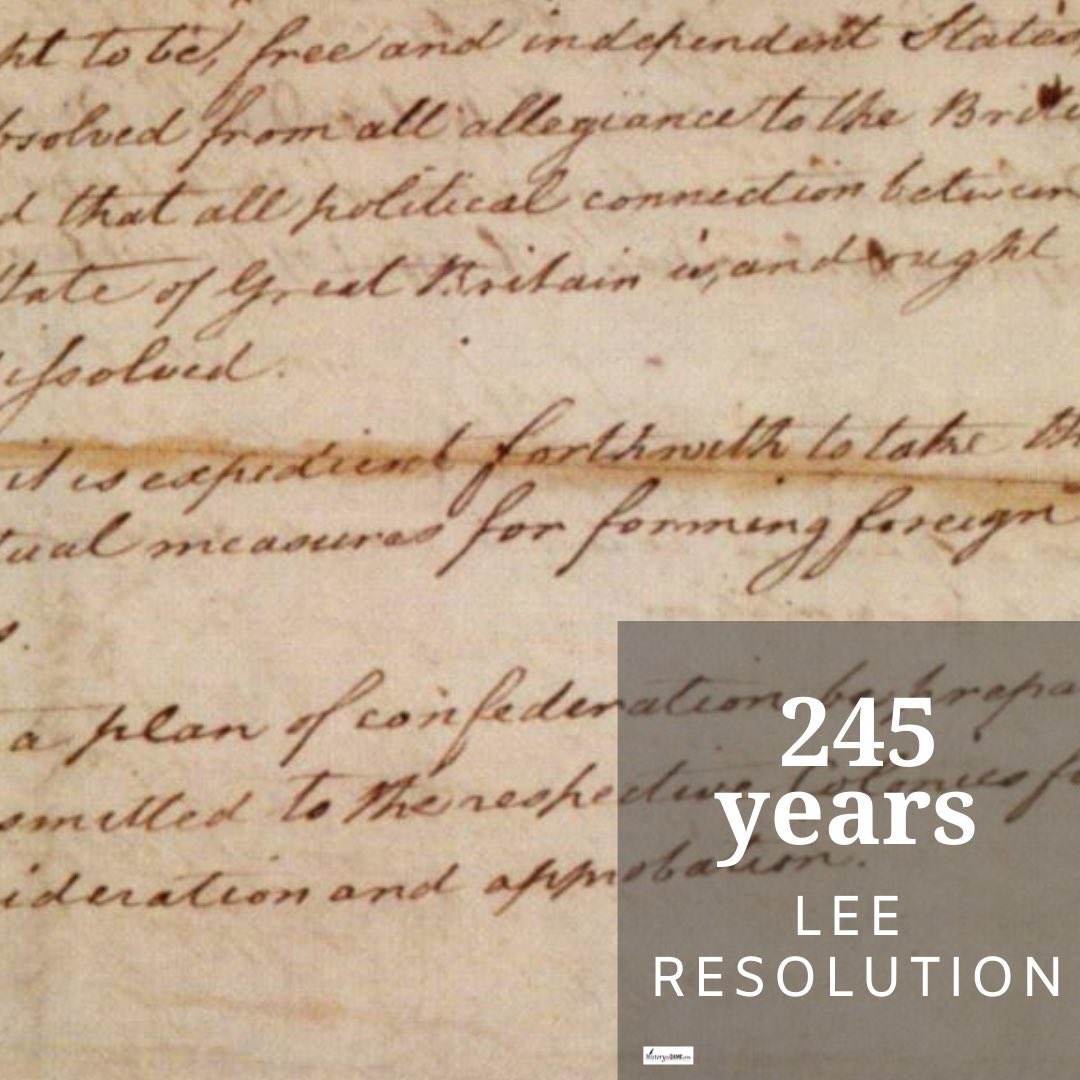 ht to be, free and independent States,
bsolved from all allegiance to the Briti
d that all political connection between
State of Great Britain is, and ought
dissolved.
it is expedient forthwith to take th
tual measures for forming foreign
s.
a plan of confederation be prepa
smitted to the respective Colonies fo
ideration and approbation.
245
years
LEE
RESOLUTION